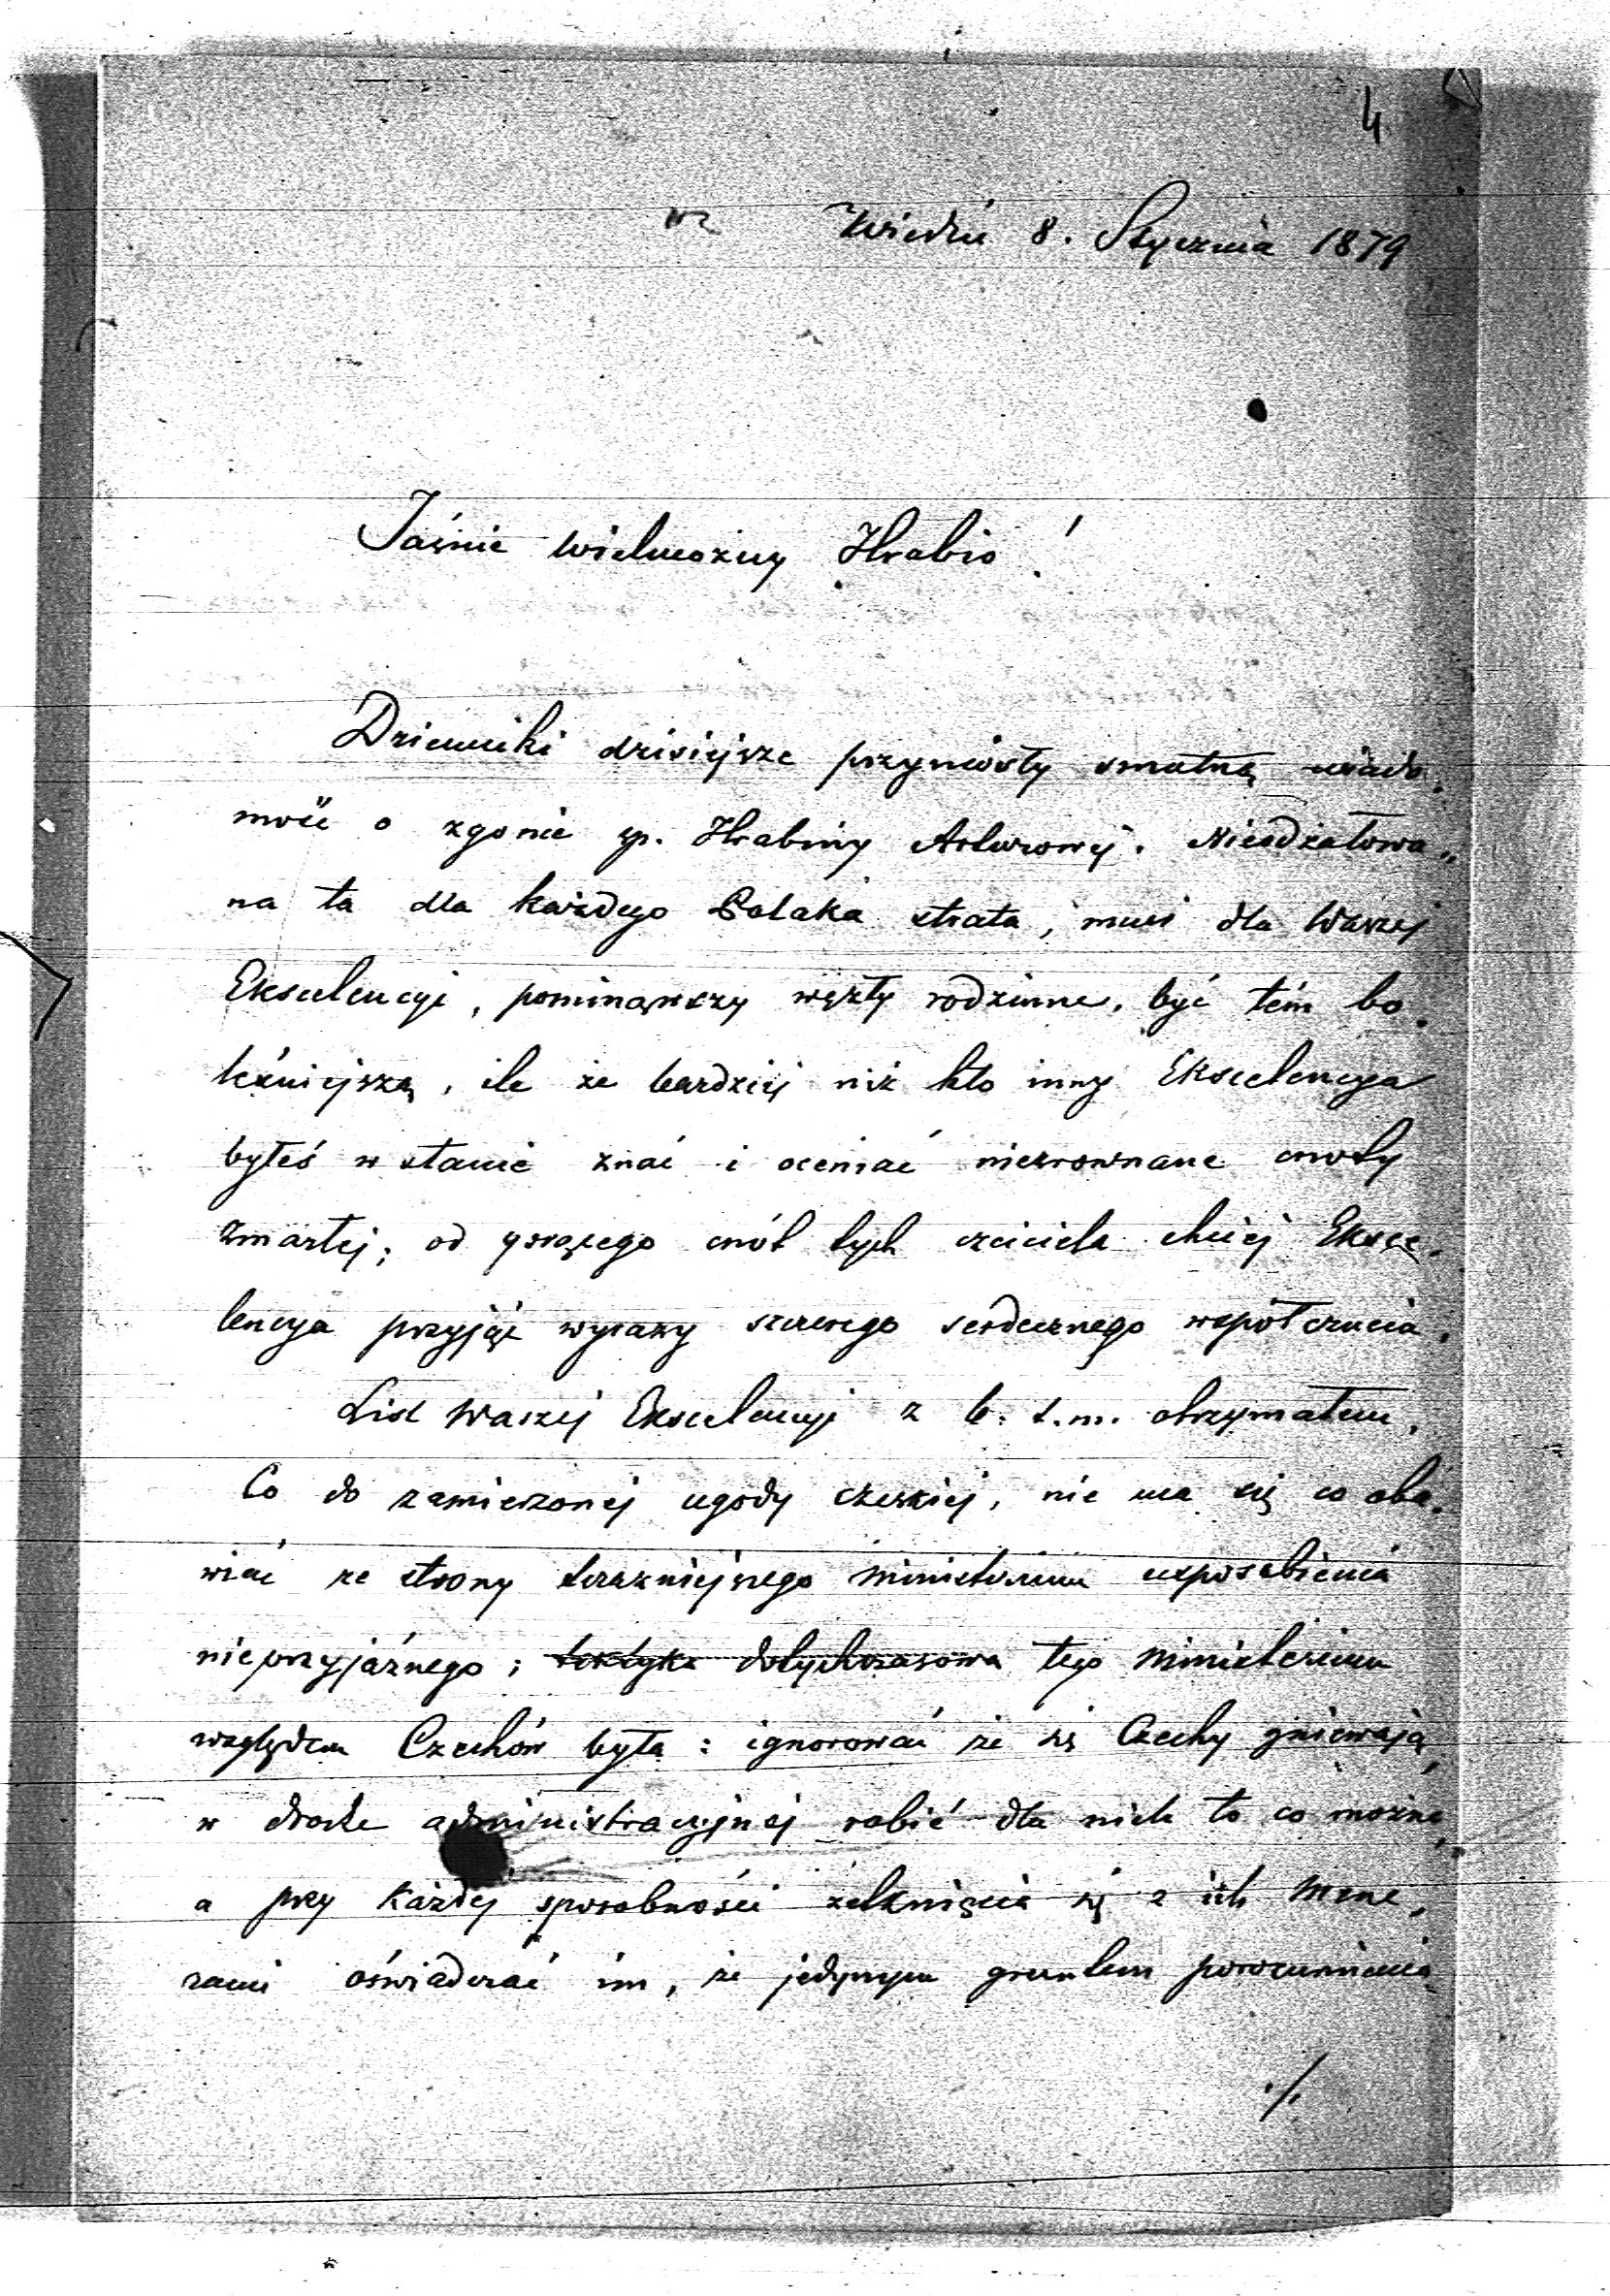 4
Wiedeń 8. Stycznia 1879
Jaśnie Wielmożny Hrabio!
Dzienniki dzisiejsze przyniosły smutną wiado-
mość o zgonie śp. Hrabiny Arturowej. Nieodżałowa-
na ta dla każdego Polaka strata, musi dla Waszej
Ekscelencyi, pominąwszy węzły rodzinne, być tém bo-
leśniejszą, ile że bardziej niż kto inny Ekscelencya
byłeś w stanie znać i oceniać niezrownane cnoty
zmarłej; od gorącego cnót tych czciciela chciej Eksce-
lencya przyjąć wyrazy szczerego serdecznego współczucia.
List Waszej Ekscelencyi z 6. t.m. otrzymałem.
Co do zamierzonej ugody czeskiej, nie ma się co oba-
wiać ze strony terazniejszego ministerium usposobienia
nieprzyjaźnego; taktyka dotychczasowa tego ministerium
względem Czechów była: ignorować że się Czechy gniewają,
w drodze administracyjnej robić dla nich to co można,
a przy każdej sposobności zetknięcia się z ich mene-
rami oświadczać im, że jedynym gruntem porozumienia
./.